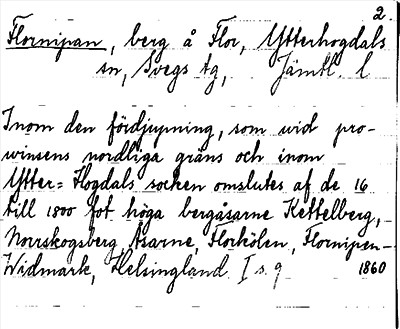 2.
Flornipan, berg å Flor, Ytterhogdals
sn, Svegs tg, Jämtl. l
Inom den fördjupning, som wid pro-
winsens nordliga gräns och inom
Ytter=Hogdals socken omslutes af de 16
till 1800 fot höga bergåsarne Kettelberg,
Norrskogsberg, Åsarne, Florhölen, Flornipen –
Widmark, Helsingland I s. 9 1860